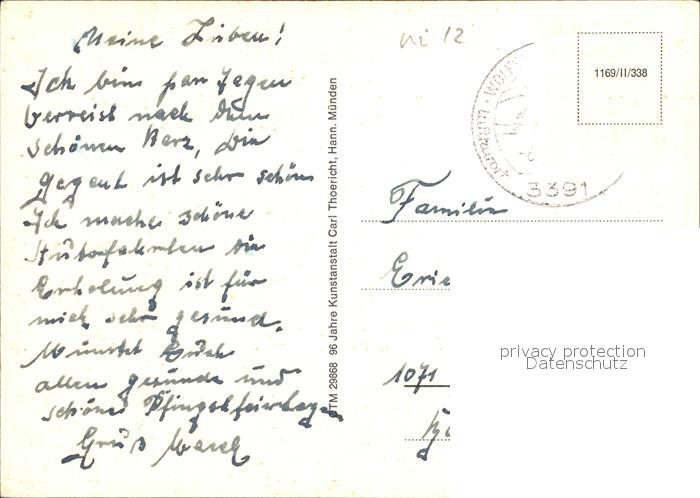 Meine Lieben!
Ich bin paar Tagen
verreist nach dem
schönen Harz, Die
Gegent ist sehr schön
Ich mache schöne
Autofahrten die
Erholung ist für
mich sehr gesund.
Wünscht Euch
allen gesunde und
schönes Pfingstfeiertagen
Gruß
TM 29868 96 Jahre Kunstanstalt Carl Thoericht, Hann. Münden
Ni 12
Luftkurort
3391
1169/II/338
Familie
Erie
1071
privacy protection
Datenschutz